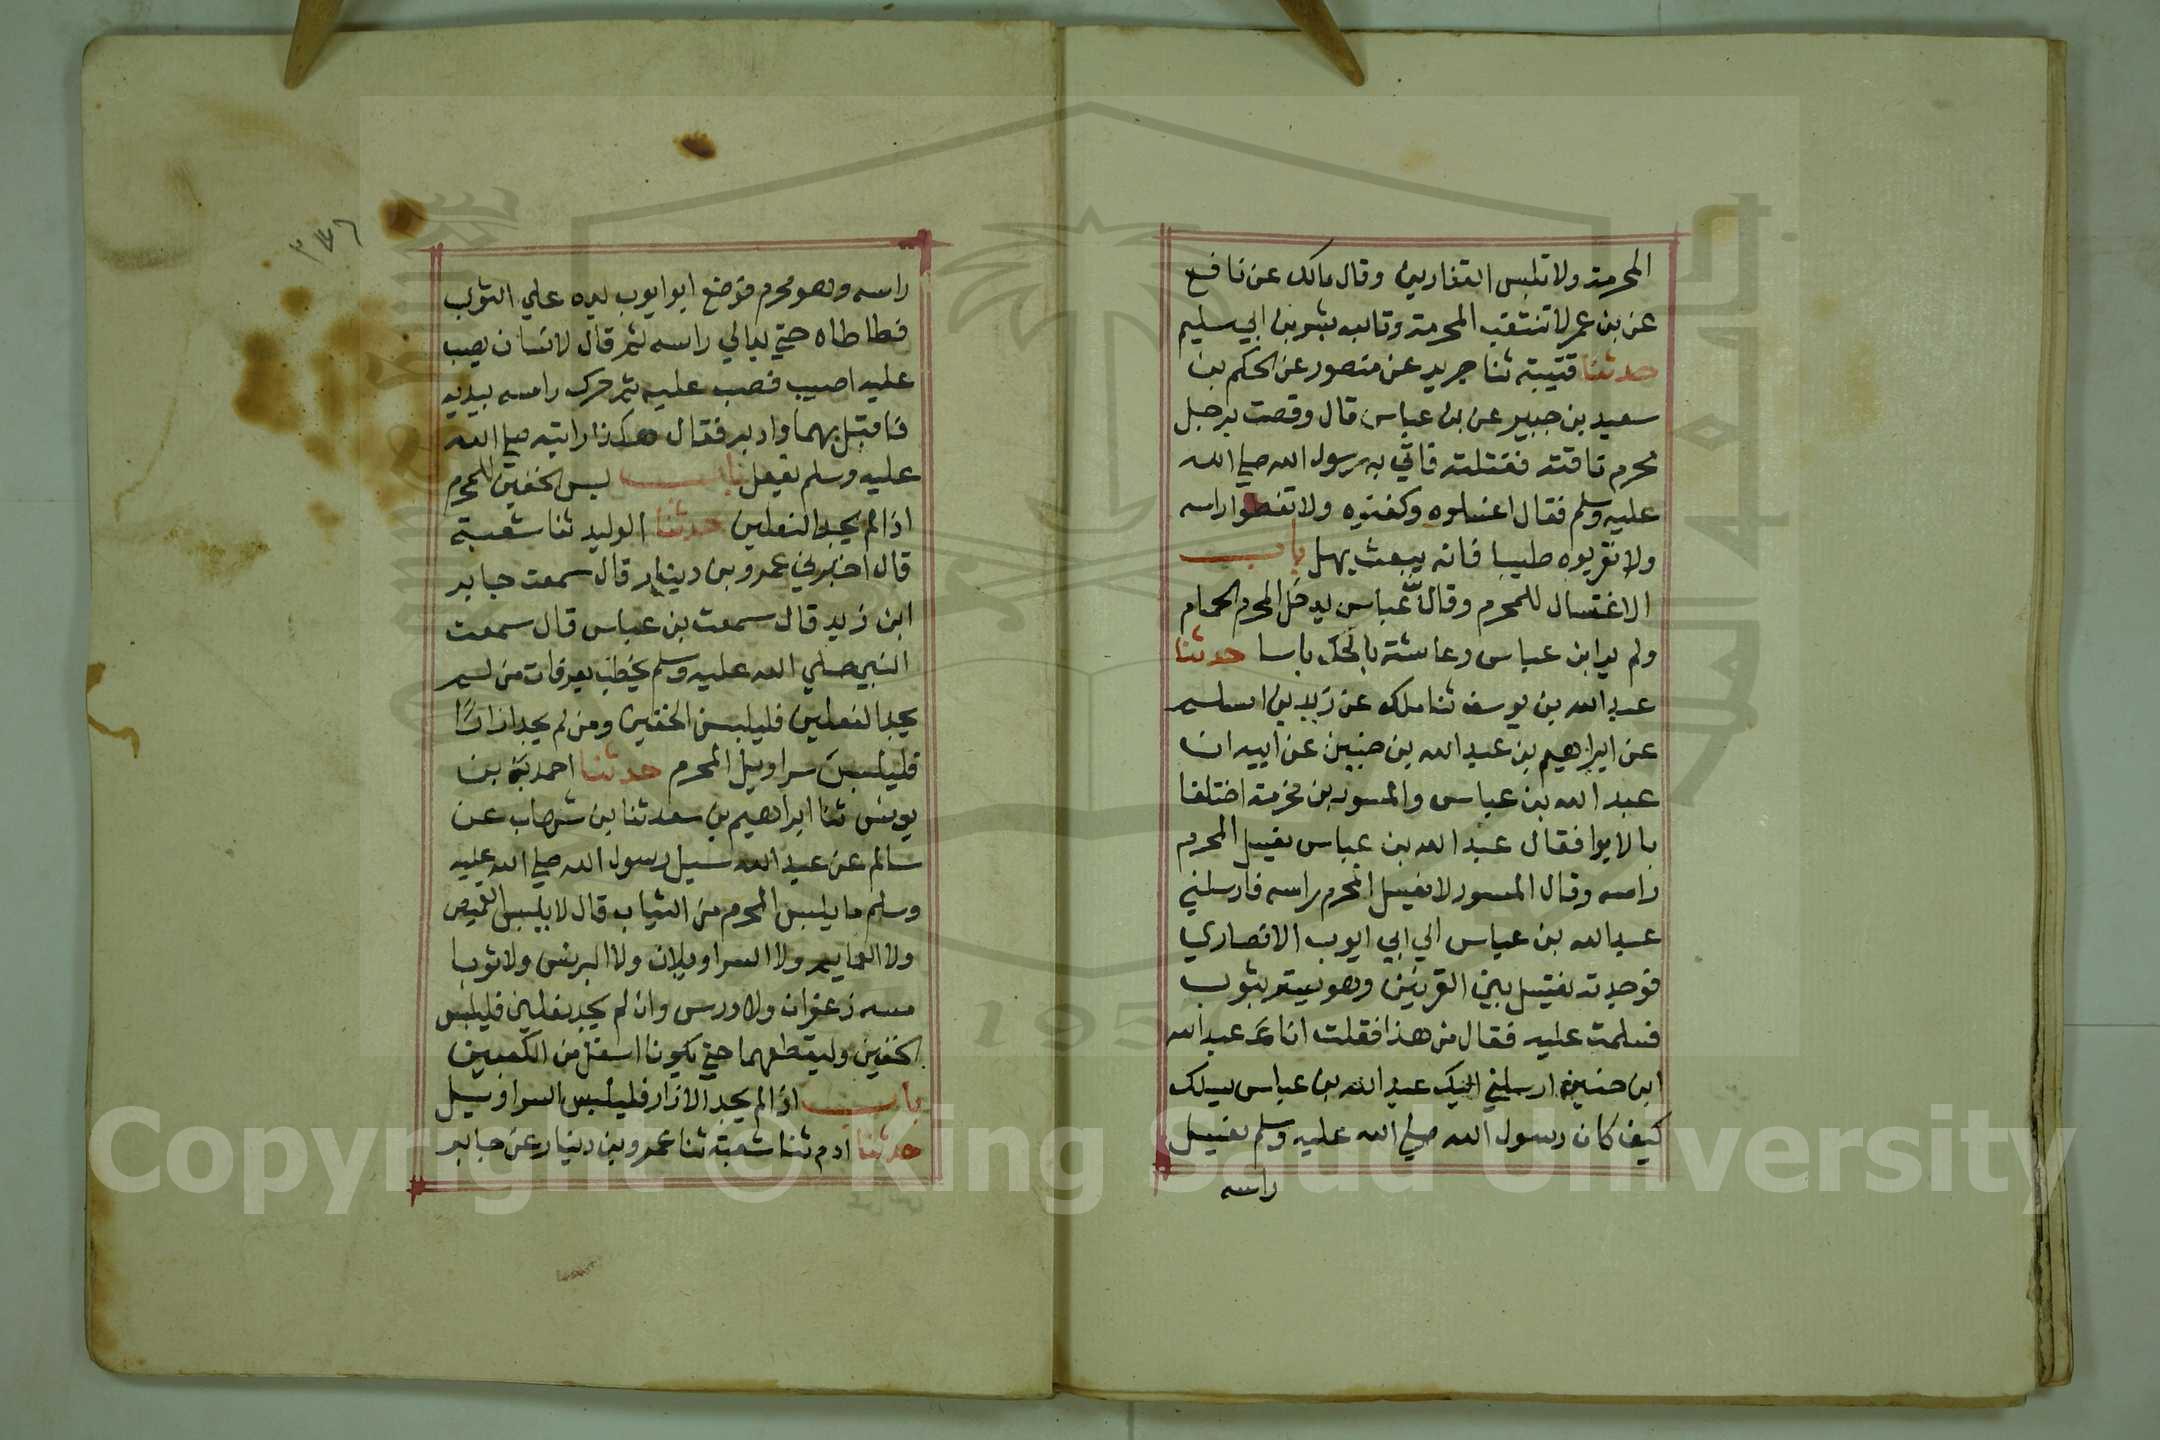 المحرمة ولا تلبس القفازين وقال مالك عن نافع
عن بن عمر لا تنتقب المحرمة وتابعه ليث بن ابي سليم
حدثنا قتيبة ثنا جرير عن منصور عن الحكم بن
سعيد بن جبير عن بن عباس قال وقصت برجل
محرم ناقته فقتلته فاتي به رسول الله صلي الله
عليه وسلم فقال اغسلوه وكفنوه ولا تغطوا راسه
ولا تقربوه طيبا فانه يبعث يهل باب
الاغتسال للمحرم وقال عباس يدخل المحرم الحمام
ولم ير ابن عباس وعائشة بالحك باسا حدثنا
عبد الله بن يوسف ثنا ملك عن زيد بن اسلم
عن ابراهيم بن عبد الله بن حنين عن ابيه ان
عبد الله بن عباس والمسور بن مخرمة اختلفا
بالابوا فقال عبد الله بن عباس يغسل المحرم
راسه وقال المسور لا يغسل المحرم راسه فارسلني
عبد الله بن عباس الي ابي ايوب الانصاري
فوجدته يغتسل بين القرنين وهو يستر بثوب
فسلمت عليه فقال من هذا فقلت انا عبد الله
ابن حنين ارسلني اليك عبد الله بن عباس يسلك
كيف كان رسول الله صلي الله عليه وسلم يغسل
راسه
٣٧٦
راسه وهو محرم فوضع ابو ايوب يده علي الثوب
فطاطاه حتي بدالي راسه ثم قال لانسان يصب
عليه اصبب فصب عليه ثم حرك راسه بيديه
فاقبل بهما وادبر فقال هكذا رايته صلي الله
عليه وسلم يفعل باب لبس الخفين للمحرم
اذا لم يجد النعلين حدثنا الوليد ثنا شعبة
قال اخبرني عمرو بن دينار قال سمعت جابر
ابن زيد قال سمعت بن عباس قال سمعت
النبي صلي الله عليه وسلم يخطب بعرفات من لم
يجد النعلين فليلبس الخفين ومن لم يجد ازارًا
فليلبس سراويل المحرم حدثنا احمد بن
يونس ثنا ابراهيم بن سعد ثنا بن شهاب عن
سالم عن عبد الله سيل رسول الله صلي الله عليه
وسلم ما يلبس المحرم من الثياب قال لا يلبس القميص
ولا العمايم ولا السراويلات ولا البرنس ولا ثوبا
مسه زعفران ولا ورس وان لم يجد نعلين فليلبس
الخفين وليقطعهما حتي يكونا اسفل من الكعبين
باب اذا لم يجد الازار فليلبس السراويل
حدثنا ادم ثنا شعبة ثنا عمرو بن دينار عن جابر
Copyright © King Saud University
1957